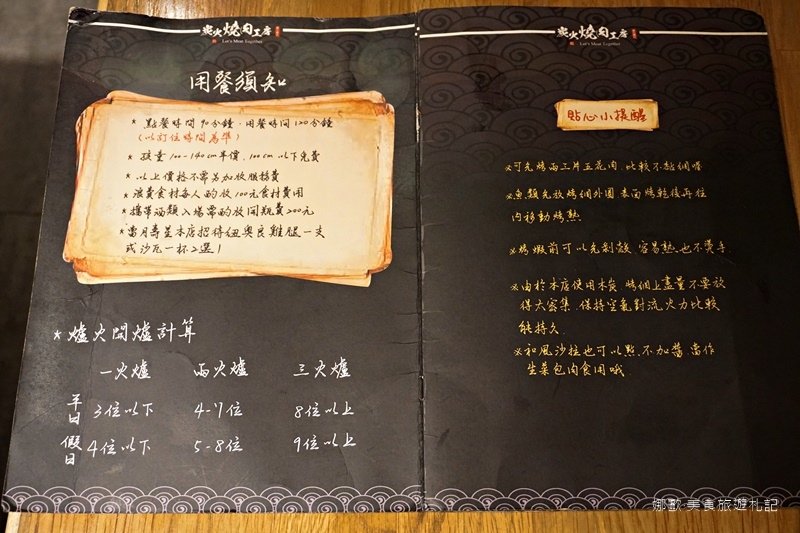 炭火燒肉工房
Let's Meat Together
用餐須知
★ 點餐時間90分鐘,用餐時間120分鐘
(以訂位時間為準)
★ 孩童100-140cm半價,100cm以下免費
★ 以上價格不需另加收服務費
★ 浪費食材每人酌收100元食材費用
★ 攜帶酒類入場需酌收開瓶費200元
★ 當月壽星本店招待紐奧良雞腿一支
或沙瓦一杯2選1
★ 爐火開爐計算
一火爐 兩火爐 三火爐
平日 3位以下 4-7位 8位以上
假日 4位以下 5-8位 9位以上
炭火燒肉工房
Let's Meat Together
貼心小提醒
※可先烤兩三片五花肉,比較不黏網唷
※魚類先放烤網外圍,表面烤乾後再往
內移動烤熟
※烤蝦前可以先剝殼,容易熟也不燙手.
※由於本店使用木炭,烤網上盡量不要放
得太密集.保持空氣對流火力比較
能持久.
※和風沙拉也可以點不加醬,當作
生菜包肉食用哦.
娜歐 美食旅遊札記